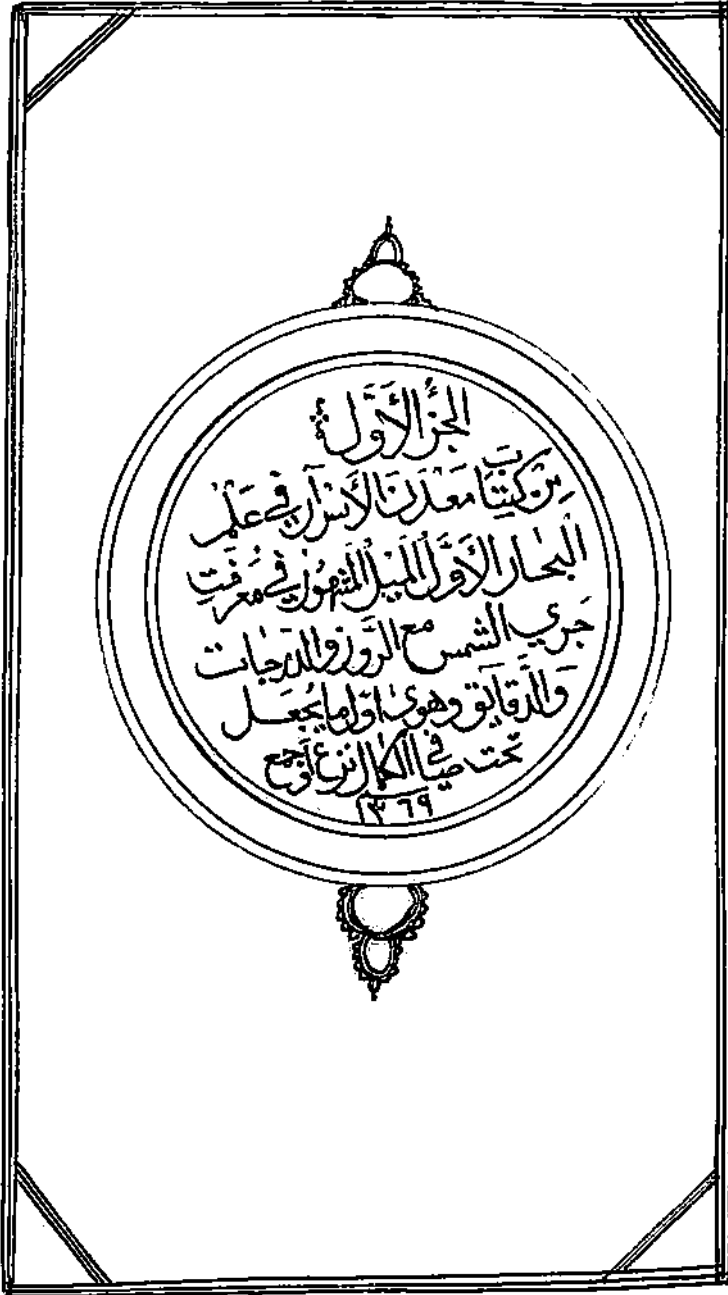 الجزُ الأَوَّل
مِن كِتَابَ مَعْدَنَ الأَسْرَآر في عَلْمِ
الْبحَار الأَوَّل الْمَيل المَشْهُوْر في مَعْرِفَتِ
جَري الشمس مع الرَّوز والدَّرجات
وَالدَّقايَق وهوى اوَّل ما يُجْعَل
تحت في الكمال
١٣٦٩